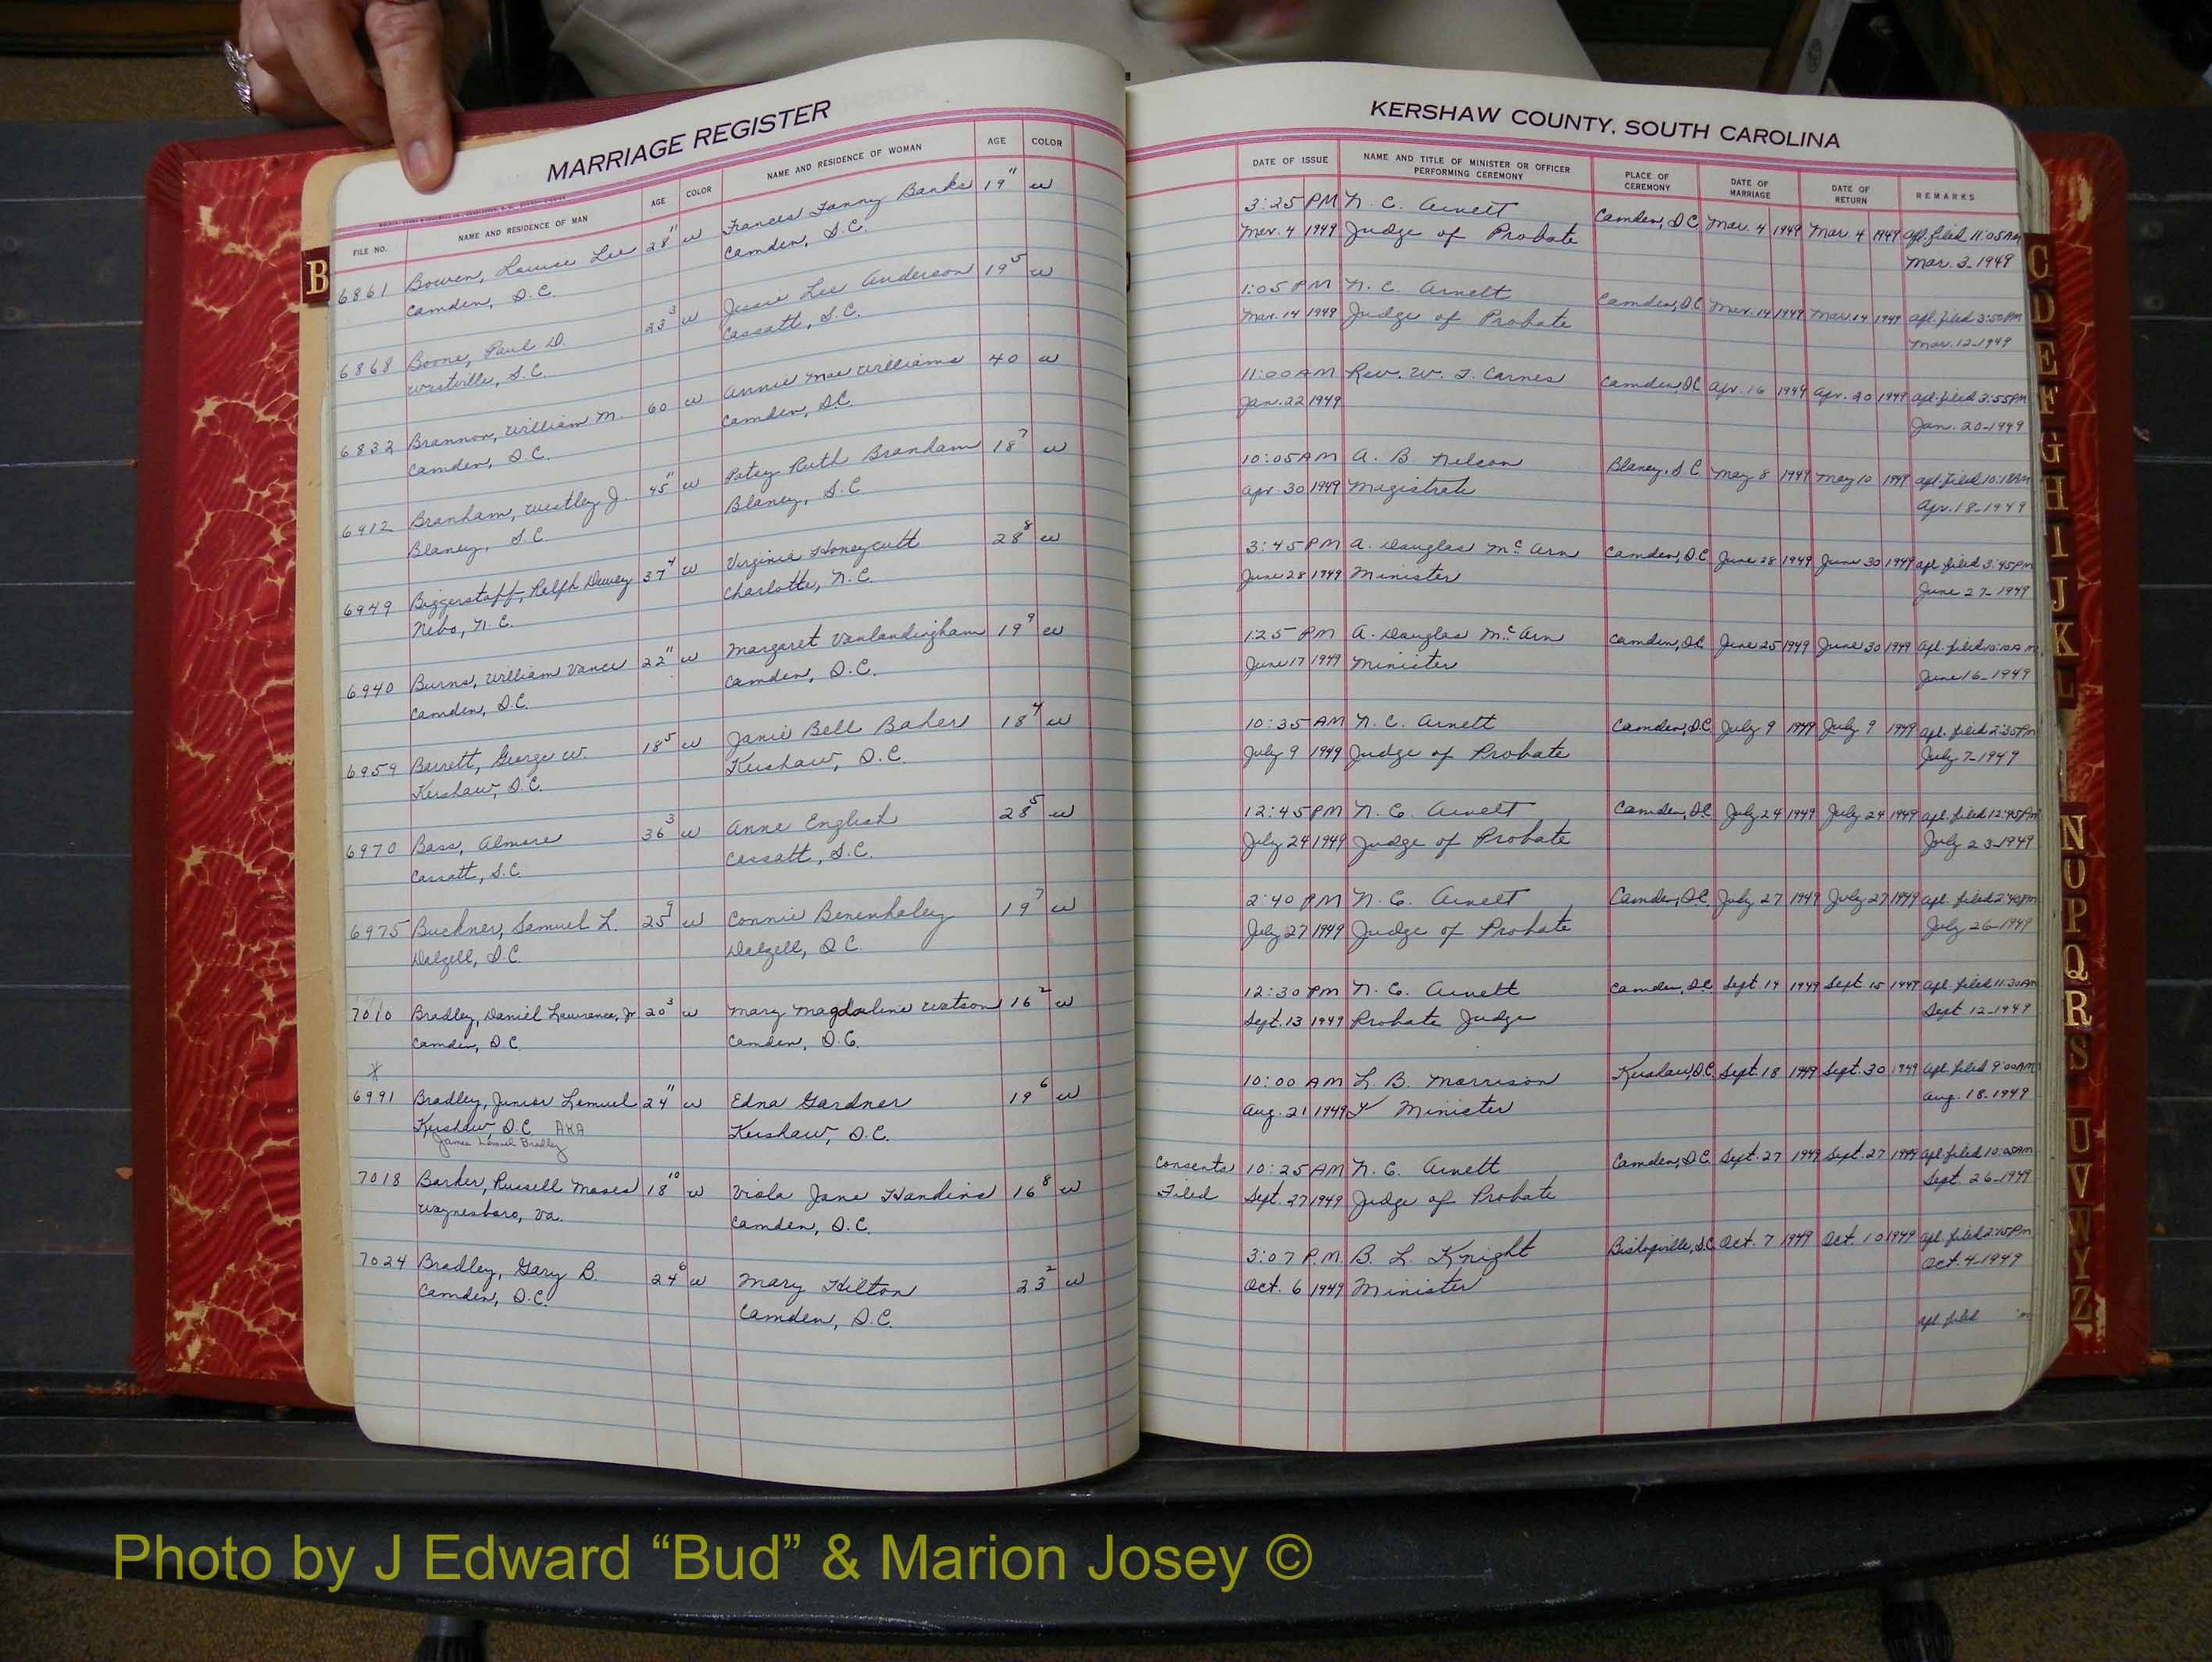 MARRIAGE REGISTER
FILE NO. NAME AND RESIDENCE OF MAN AGE COLOR NAME AND RESIDENCE OF WOMAN AGE COLOR
B
6861 Bowen, Lee 28 11 w Frances Fanny Banks 19 11 w
Camden, S.C. Camden, S.C.
6868 Boone, Paul D. 23 3 w Jessie Lee Anderson 19 5 w
Westville, S.C. Cassatt, S.C.
6832 Brannon, William M. 60 w Annie Mae Williams 40 w
Camden, S.C. Camden, S.C.
6912 Branham, Westley J. 45 11 w Patsy Ruth Branham 18 7 w
Blaney, S.C. Blaney, S.C
6949 Biggerstaff, Ralph Dewey 37 4 w Virginia Honeycutt 28 8 w
Nebo, N.C. Charlotte, N.C.
6940 Burns, William Vance 22 11 w Margaret Vanlandingham 19 9 w
Camden, S.C. Camden, S.C.
6959 Barrett, George W. 18 5 w Janie Bell Baker 18 4 w
Kershaw, S.C. Kershaw, S.C.
6970 Bass, Almore 36 3 w Anne English 28 5 w
Cassatt, S.C. Cassatt, S.C.
6975 Buckner, Samuel L. 25 9 w Connie Benenhaley 19 7 w
Dalzell, S.C. Dalzell, S.C.
7010 Bradley, Daniel Lawrence, Jr 20 3 w Mary Magdalene Watson 16 2 w
Camden, S.C. Camden, S.C.
*
6991 Bradley, Junior Lemuel 24 11 w Edna Gardner 19 6 w
Kershaw, S.C. AKA Kershaw, S.C.
James Lemuel Bradley
7018 Barker, Russell Moses 18 10 w Viola Jane 16 8 w
Waynesboro, Va. Camden, S.C.
7024 Bradley, Gary B. 24 6 w Mary Hilton 23 2 w
Camden, S.C. Camden, S.C.
KERSHAW COUNTY, SOUTH CAROLINA
DATE OF ISSUE NAME AND TITLE OF MINISTER OR OFFICER PERFORMING CEREMONY PLACE OF CEREMONY DATE OF MARRIAGE DATE OF RETURN REMARKS
3:25 PM N. C. Arnett Camden, S.C. Mar. 4 1949 Mar. 4 1949 apl. filed 11:05 AM
Mar. 4 1949 Judge of Probate Mar. 3-1949
1:05 PM N. C. Arnett Camden, S.C. Mar. 14 1949 Mar. 14 1949 apl. filed 3:50 PM
Mar. 14 1949 Judge of Probate Mar. 12-1949
11:00 AM Rev. W. J. Carnes Camden, S.C. Apr. 16 1949 Apr. 20 1949 apl. filed 3:55 PM
Jan. 22 1949 Jan. 20-1949
10:05 AM A. B. Nelson Blaney, S.C. May 8 1949 May 10 1949 apl. filed 10:18 AM
Apr. 30 1949 Magistrate Apr. 18-1949
3:45 PM A. Douglas McArn Camden, S.C. June 28 1949 June 30 1949 apl. filed 3:45 PM
June 28 1949 Minister June 27-1949
1:25 PM A. Douglas McArn Camden, S.C. June 25 1949 June 30 1949 apl. filed 10:10 AM
June 17 1949 Minister June 16-1949
10:35 AM N. C. Arnett Camden, S.C. July 9 1949 July 9 1949 apl. filed 2:35 PM
July 9 1949 Judge of Probate July 7-1949
12:45 PM N. C. Arnett Camden, S.C. July 24 1949 July 24 1949 apl. filed 12:45 PM
July 24 1949 Judge of Probate July 23-1949
2:40 PM N. C. Arnett Camden, S.C. July 27 1949 July 27 1949 apl. filed 2:40 PM
July 27 1949 Judge of Probate July 26-1949
12:30 PM N. C. Arnett Camden, S.C. Sept. 14 1949 Sept. 15 1949 apl. filed 11:30 AM
Sept. 13 1949 Probate Judge Sept 12-1949
10:00 AM L. B. Morrison Kershaw, S.C. Sept. 18 1949 Sept. 30 1949 apl. filed 9:00 AM
Aug. 21 1949 Minister Aug. 18-1949
Consents 10:25 AM N. C. Arnett Camden, S.C. Sept. 27 1949 Sept. 27 1949 apl. filed 10:05 AM
Filed Sept. 27 1949 Judge of Probate Sept. 26-1949
3:07 P.M B. L. Knight Bishopville, S.C. Oct. 7 1949 Oct. 10 1949 apl. filed 2:45 PM
Oct. 6 1949 Minister Oct. 4-1949
apl. filed
C
D
E
F
G
H
I
J
K
L
N
O
P
Q
R
S
U
V
W
Y
Z
Photo by J Edward “Bud” & Marion Josey ©